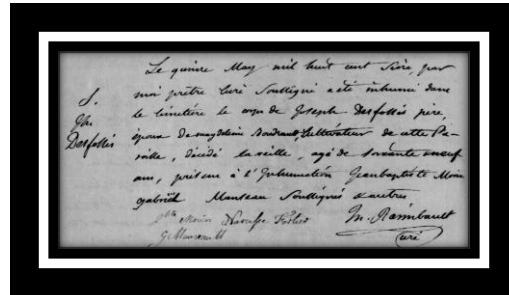 S.
Jh.
Desfossés
Le quinze May mil huit cent seize, par
moi prêtre Curé Soussigné a été inhumé dans
le cimetière le corps de Joseph Desfossés père,
époux de magdelein Boudraut, Cultivateur de cette Pa-
roisse, décédé la veille, agé de soixante et neuf
ans, présens à l'Inhumation Jeanbaptiste Morin
gabriël Manseau Soussignés et autres
Morin
G Manseau
M. Raimbault
Curé